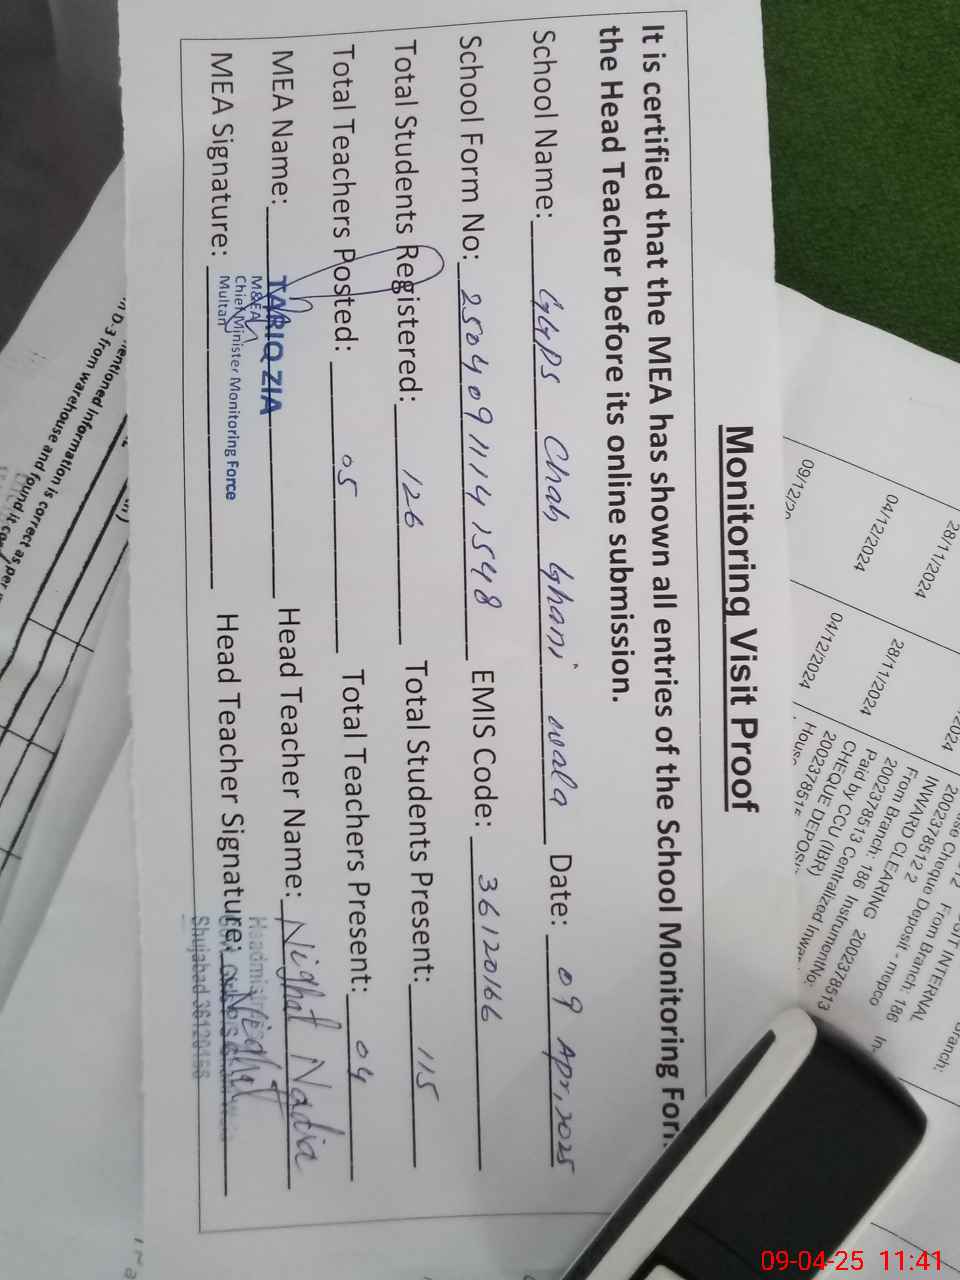 Monitoring Visit Proof
It is certified that the MEA has shown all entries of the School Monitoring Form
the Head Teacher before its online submission.
School Name: GGPS Chah Ghani wala Date: 09 Apr, 2025
School Form No: 250409111141548 EMIS Code: 36120166
Total Students Registered: 126 Total Students Present: 115
Total Teachers Posted: 05 Total Teachers Present: 04
MEA Name: TARIQ ZIA Head Teacher Name: Nighat Nadia
M&EA
Chief Minister Monitoring Force
Multan
MEA Signature: Head Teacher Signature: Nighat
Headmistress
Shujabad 36120166
28/11/2024
04/12/2024
09/12/20
28/11/2024
04/12/2024
INWARD CLEARING 2002378513
From Branch: 186 InstrumentNo:
2002378513 Centralized Inwar
Paid by CCU (IBR)
CHEQUE DEPOSI
2002378512 2
Cheque Deposit - mepco
From Branch: 186
INTERNAL
entioned information is correct as per
D-3 from warehouse and found it co
09-04-25 11:41